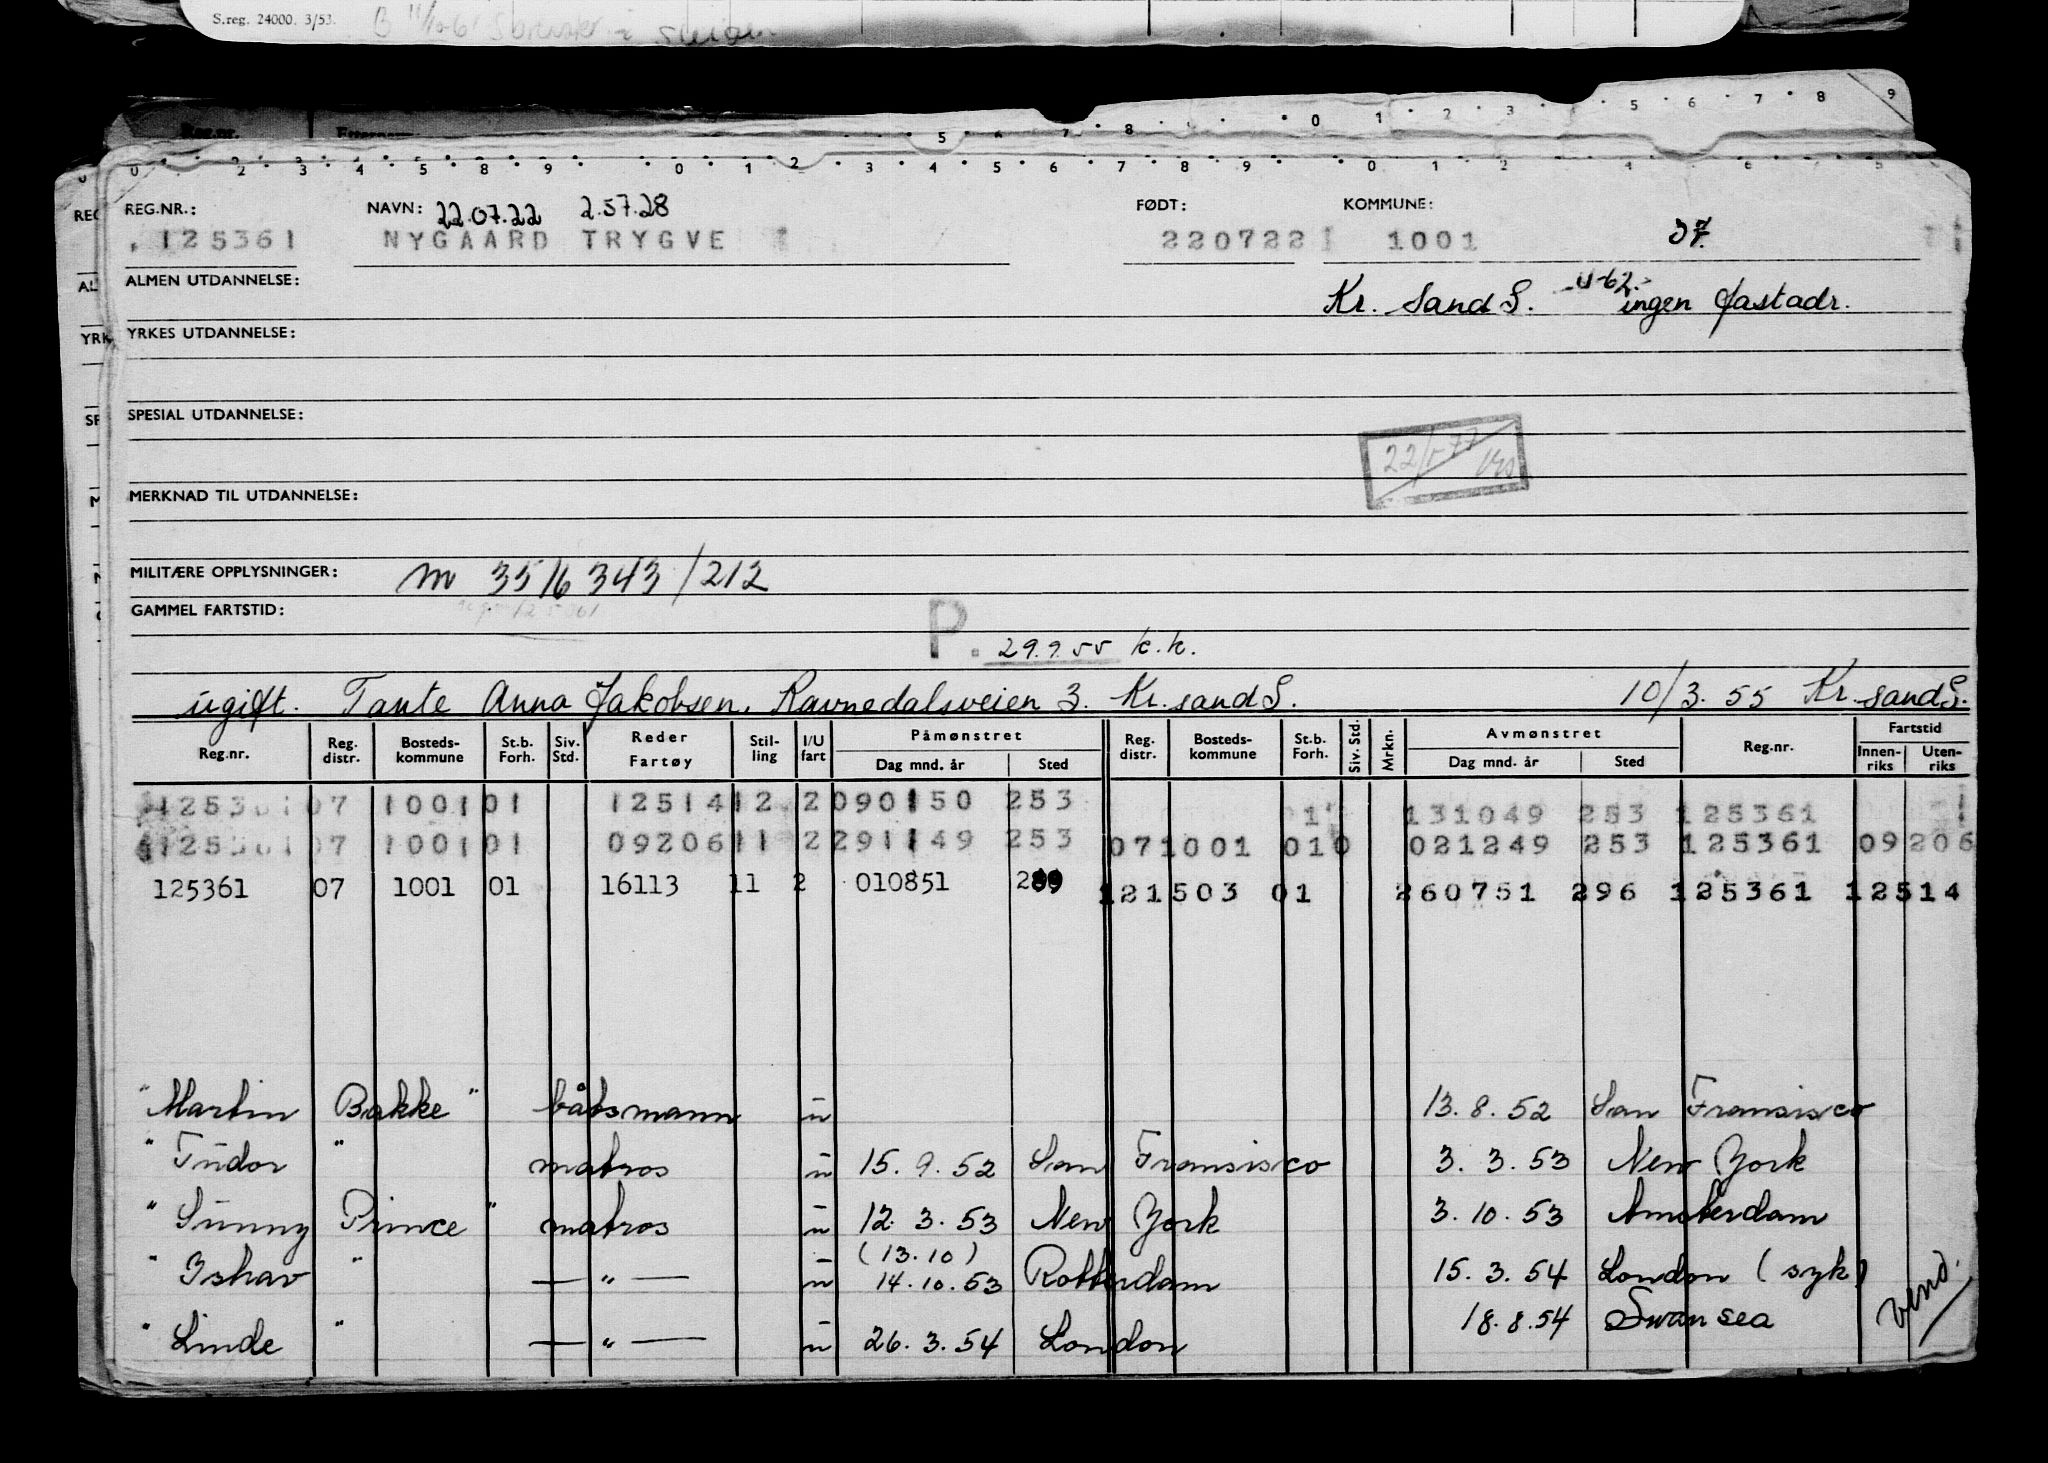 S.reg. 24000. 3/53.
REG.NR.: NAVN: 22.07.22 2.57.28 FØDT: KOMMUNE:
125361 NYGAARD TRYGVE 220722 1001 07
ALMEN UTDANNELSE: Kr. Sand S. U-62. ingen fastadr.
YRKES UTDANNELSE:
SPESIAL UTDANNELSE:
MERKNAD TIL UTDANNELSE:
MILITÆRE OPPLYSNINGER: m 3516343/212
GAMMEL FARTSTID:
P. 29.9.55 k.k.
ugift. Tante Anna Jakobsen, Ravnedalsveien 3. Kr. sand S. 10/3.55 Kr. sand S.
Reg.nr. Reg. distr. Bosteds-kommune St.b. Forh. Siv. Std. Reder Fartøy Stil-ling I/U fart Påmønstret Dag mnd. år Sted Reg. distr. Bosteds-kommune St.b. Forh. Siv. Std. Mrkn. Avmønstret Dag mnd. år Sted Reg.nr. Fartstid Innen-riks Uten-riks
125361 07 1001 01 12514 12 2 090150 253 01 131049 253 125361
125361 07 1001 01 09206 11 2 291149 253 07 1001 010 021249 253 125361 09206
125361 07 1001 01 16113 11 2 010851 289 12 1503 01 260751 296 125361 12514
"Martin Bakke" båtsmann u 13.8.52 San Fransisco
"Tudor" matros u 15.9.52 San Fransisco 3.3.53 New York
"Sunny Prince" matros u 12.3.53 New York 3.10.53 Amsterdam
"Ishav" — " — u (13.10) 14.10.53 Rotterdam 15.3.54 London (syk)
"Linde" — " — u 26.3.54 London 18.8.54 Swansea
vend.